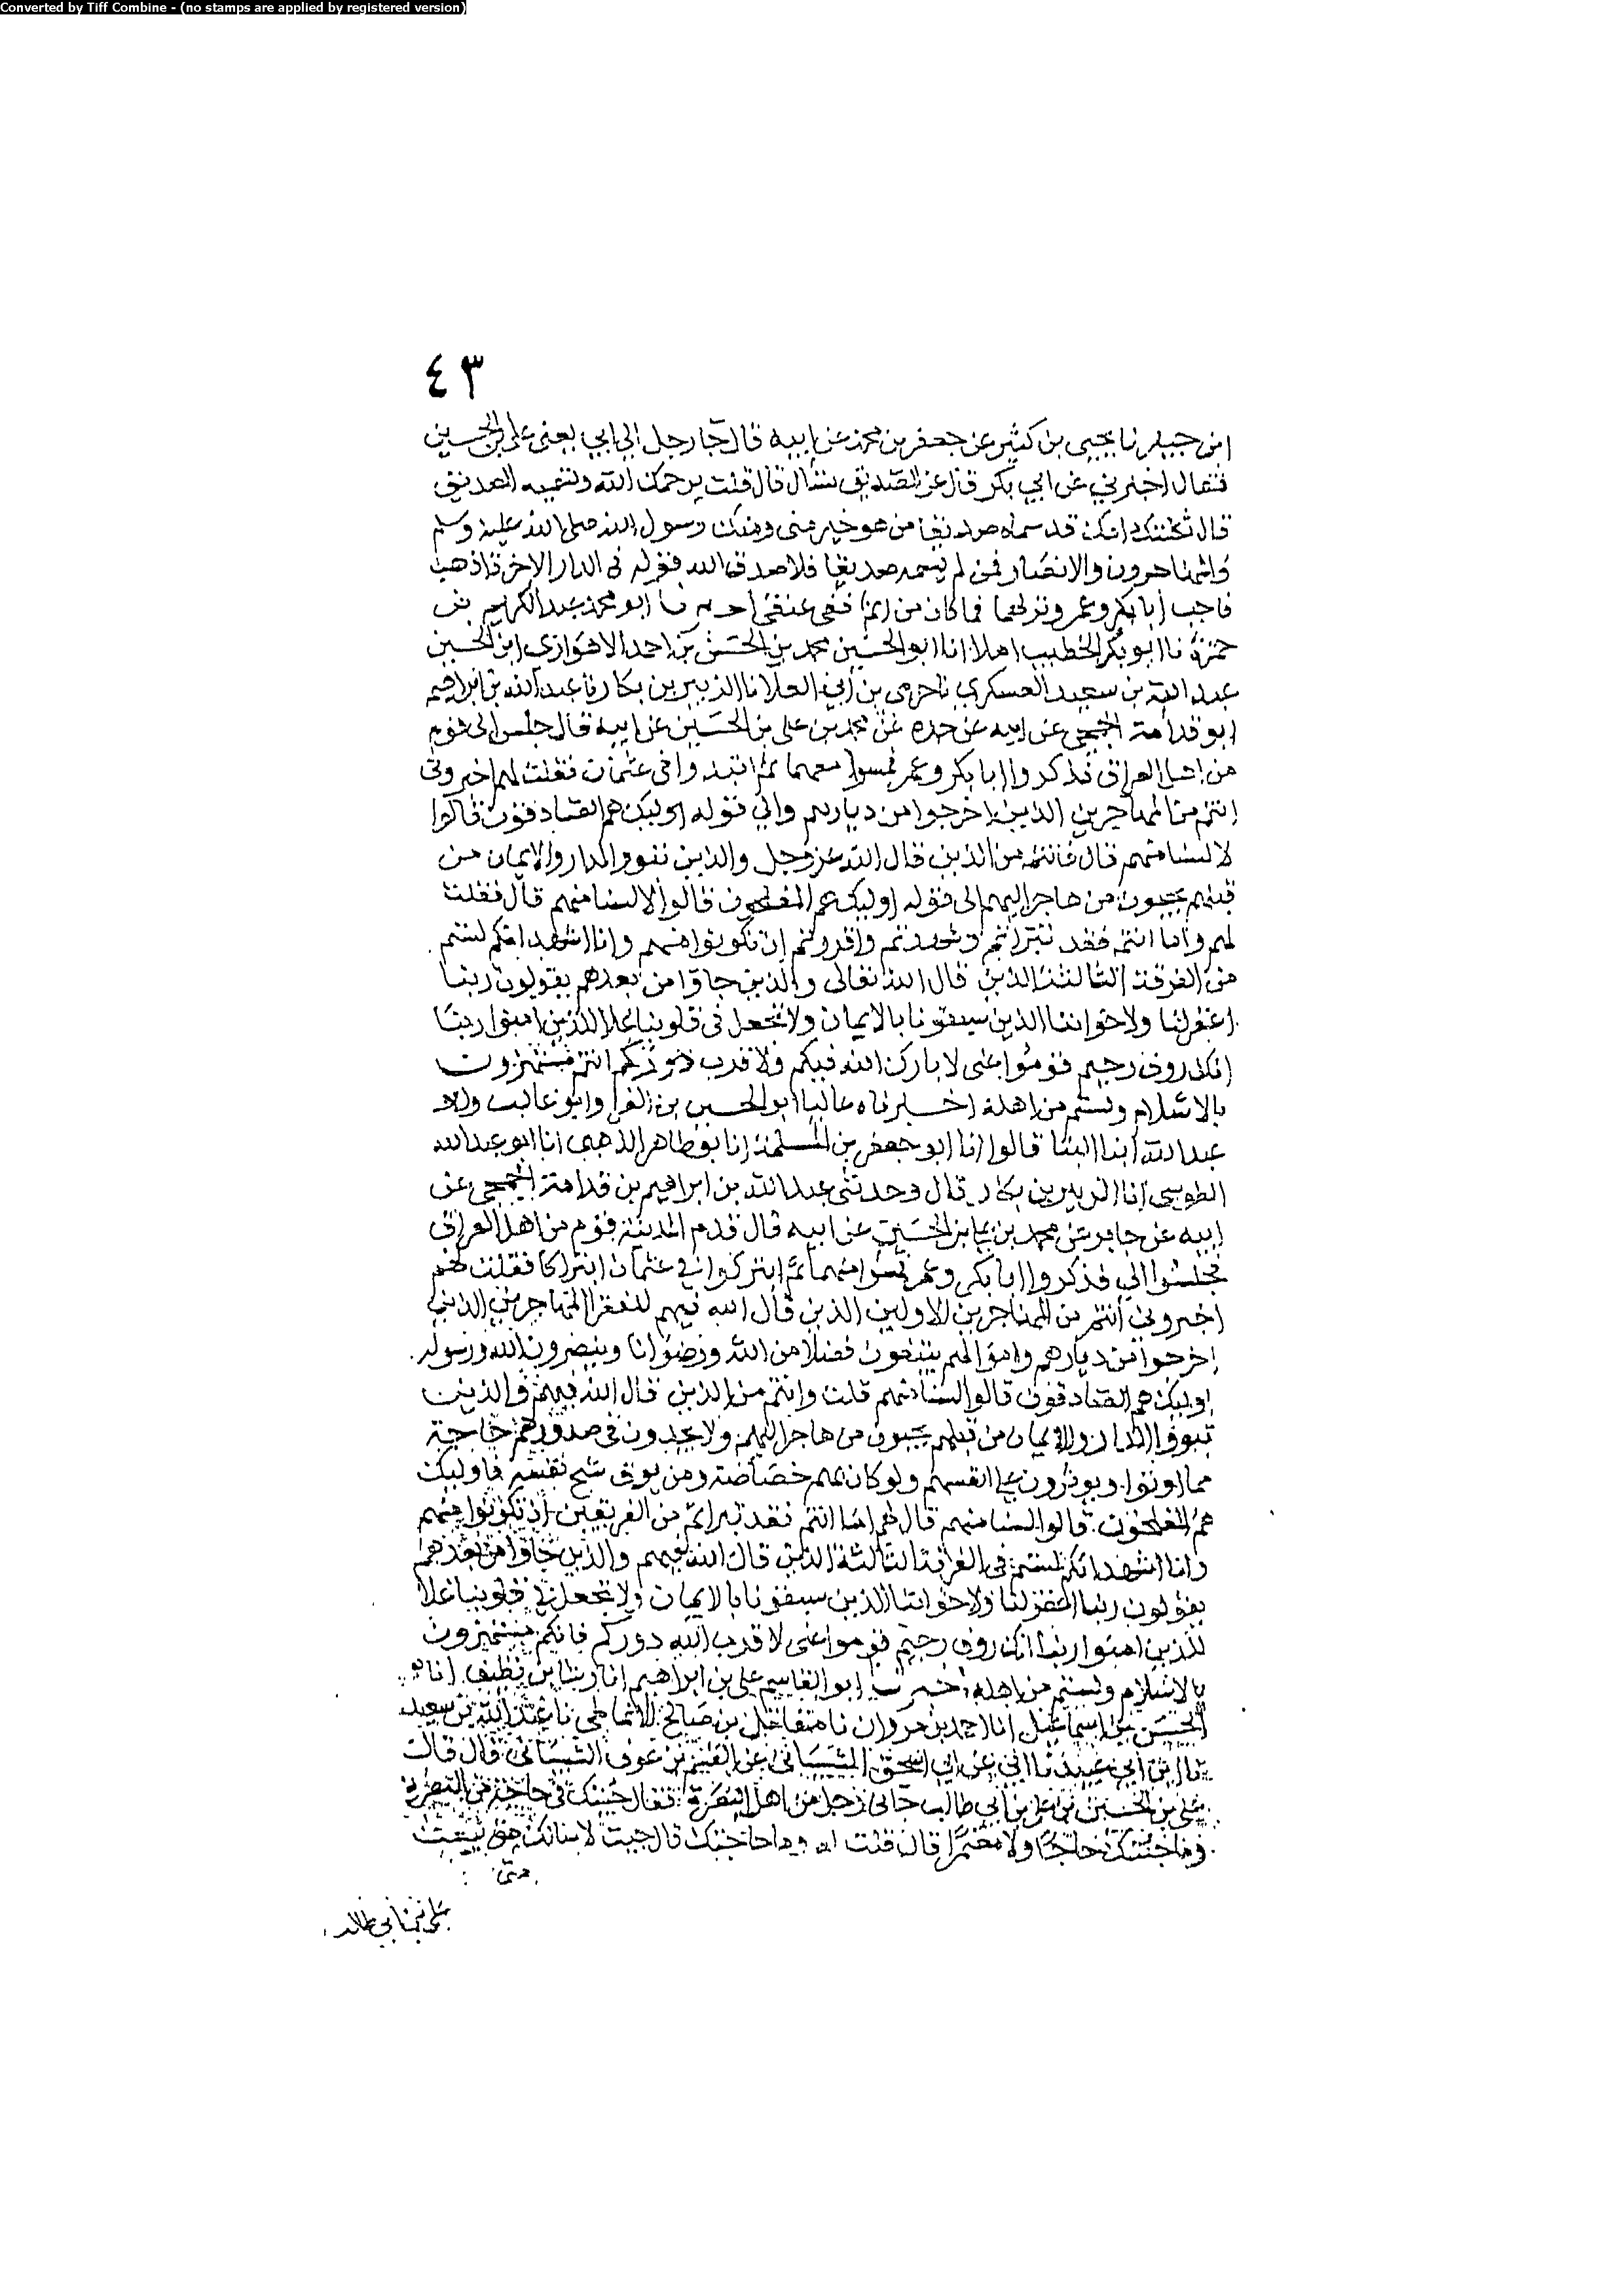 Converted by Tiff Combine - (no stamps are applied by registered version)
٤٣
ابن جبير نا يحيى بن كثير عن جعفر بن محمد عن ابيه قال جا رجل الى ابي يعني علي بن الحسين
فقال اخبرني عن ابي بكر قال عن الصديق تسال قال قلت يرحمك الله وتسميه الصديق
قال ثكلتك امك قد سماه صديقا من هو خير مني ومنك رسول الله صلى الله عليه وسلم
والمهاجرون والانصار فمن لم يسمه صديقا فلا صدق الله قوله في الدار الاخرة اذهب
فاحب ابا بكر وعمر وتولهما فما كان من اثم ففي عنقي ابو محمد عبد الكريم بن
حمزة نا ابو بكر الخطيب املا انا ابو الحسين محمد بن الحسن بن احمد الاهوازي ابن الحسين
عبد الله بن سعيد العسكري نا حرمي بن ابي العلا نا الزبير بن بكار نا عبد الله بن ابراهيم
ابو قدامة الجمحي عن ابيه عن جده عن محمد بن علي بن الحسين عن ابيه قال جلس الى قوم
من اهل العراق فذكروا ابا بكر وعمر فمسوا منهما ثم ابتدوا في عثمان فقلت لهم اخبروني
انتم من المهاجرين الذين اخرجوا من ديارهم والى قوله اوليك هم الصادقون قالوا
لا لسنا منهم قال فانتم من الذين قال الله عز وجل والذين تبوو الدار والايمان من
قبلهم يحبون من هاجر اليهم الى قوله اوليك هم المفلحون قالوا لا لسنا منهم قال فقلت
لهم واما انتم فقد تبراتم وشهدتم واقررتم ان تكونوا منهم وانا اشهد انكم لستم
من الفرقة الثالثة الذين قال الله تعالى والذين جاوا من بعدهم يقولون ربنا
اغفر لنا ولاخواننا الذين سبقونا بالايمان ولا تجعل في قلوبنا غلا للذين امنوا ربنا
انك روف رحيم قوموا عني لا بارك الله فيكم ولا قرب دوركم انتم مستهزون
بالاسلام ولستم من اهله اخبرناه عاليا ابو الحسين بن الفرا وابو غالب و
عبد الله ابنا البنا قالوا انا ابو جعفر بن المسلمة انا بو طاهر الذهبي انا ابو عبد الله
الطوسي انا الزبير بن بكار قال وحدثني عبد الله بن ابراهيم بن قدامة الجمحي عن
ابيه عن جابر عن محمد بن علي بن الحسين عن ابيه قال قدم المدينة قوم من اهل العراق
فجلسوا الي فذكروا ابا بكر وعمر فمسوا منهما ثم ابتركوا في عثمان ابتراكا فقلت لهم
اخبروني انتم من المهاجرين الاولين الذين قال الله فيهم للفقرا المهاجرين الذين
اخرجوا من ديارهم واموالهم يبتغون فضلا من الله ورضوانا وينصرون الله ورسوله
اوليك هم الصادقون قالوا لسنا منهم قلت وانتم من الذين قال الله فيهم والذين
تبووا الدار والايمان من قبلهم يحبون من هاجر اليهم ولا يجدون في صدورهم حاجة
مما اوتوا ويوثرون على انفسهم ولو كان بهم خصاصة ومن يوق شح نفسه فاوليك
هم المفلحون قالوا لسنا منهم قال لهم اما انتم فقد تبراتم من الفريقين ان تكونوا منهم
وانا اشهد انكم لستم في الفرقة الثالثة الذين قال الله فيهم والذين جاوا من بعدهم
يقولون ربنا اغفر لنا ولاخواننا الذين سبقونا بالايمان ولا تجعل في قلوبنا غلا
للذين امنوا ربنا انك روف رحيم قوموا عني لا قرب الله دوركم فانكم مستهزون
بالاسلام ولستم من اهله اخبرنا ابو القاسم علي بن ابراهيم انا رشا بن نظيف انا
الحسن بن اسماعيل انا احمد بن مروان نا صالح الانماطي نا عبد الله بن سعيد
ابي عن ابي اسحق الشيباني عن القسم بن عوف الشيباني قال قال
علي بن الحسين بن علي بن ابي طالب جاني رجل من اهل البصرة فقال جيتك في حاجة من البصرة
وما جيتك حاجا ولا معتمرا قال قلت له وما حاجتك قال جيت لاسالك متى يبعث
متى
علي بن ابي طالب